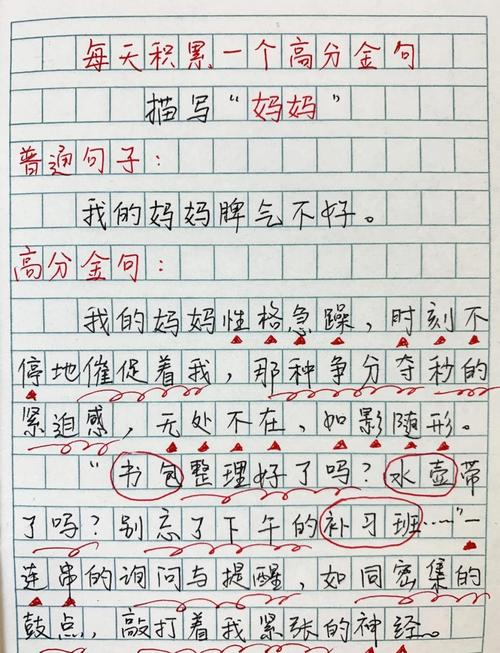 每天积累一个高分金句
描写“妈妈”
普通句子：
我的妈妈脾气不好。
高分金句：
我的妈妈性格急躁，时刻不
停地催促着我，那种争分夺秒的
紧迫感，无处不在，如影随形。
“书包整理好了吗？水壶带
了吗？别忘了下午的补习班……”一
连串的询问与提醒，如同密集的
鼓点，敲打着我紧张的神经。